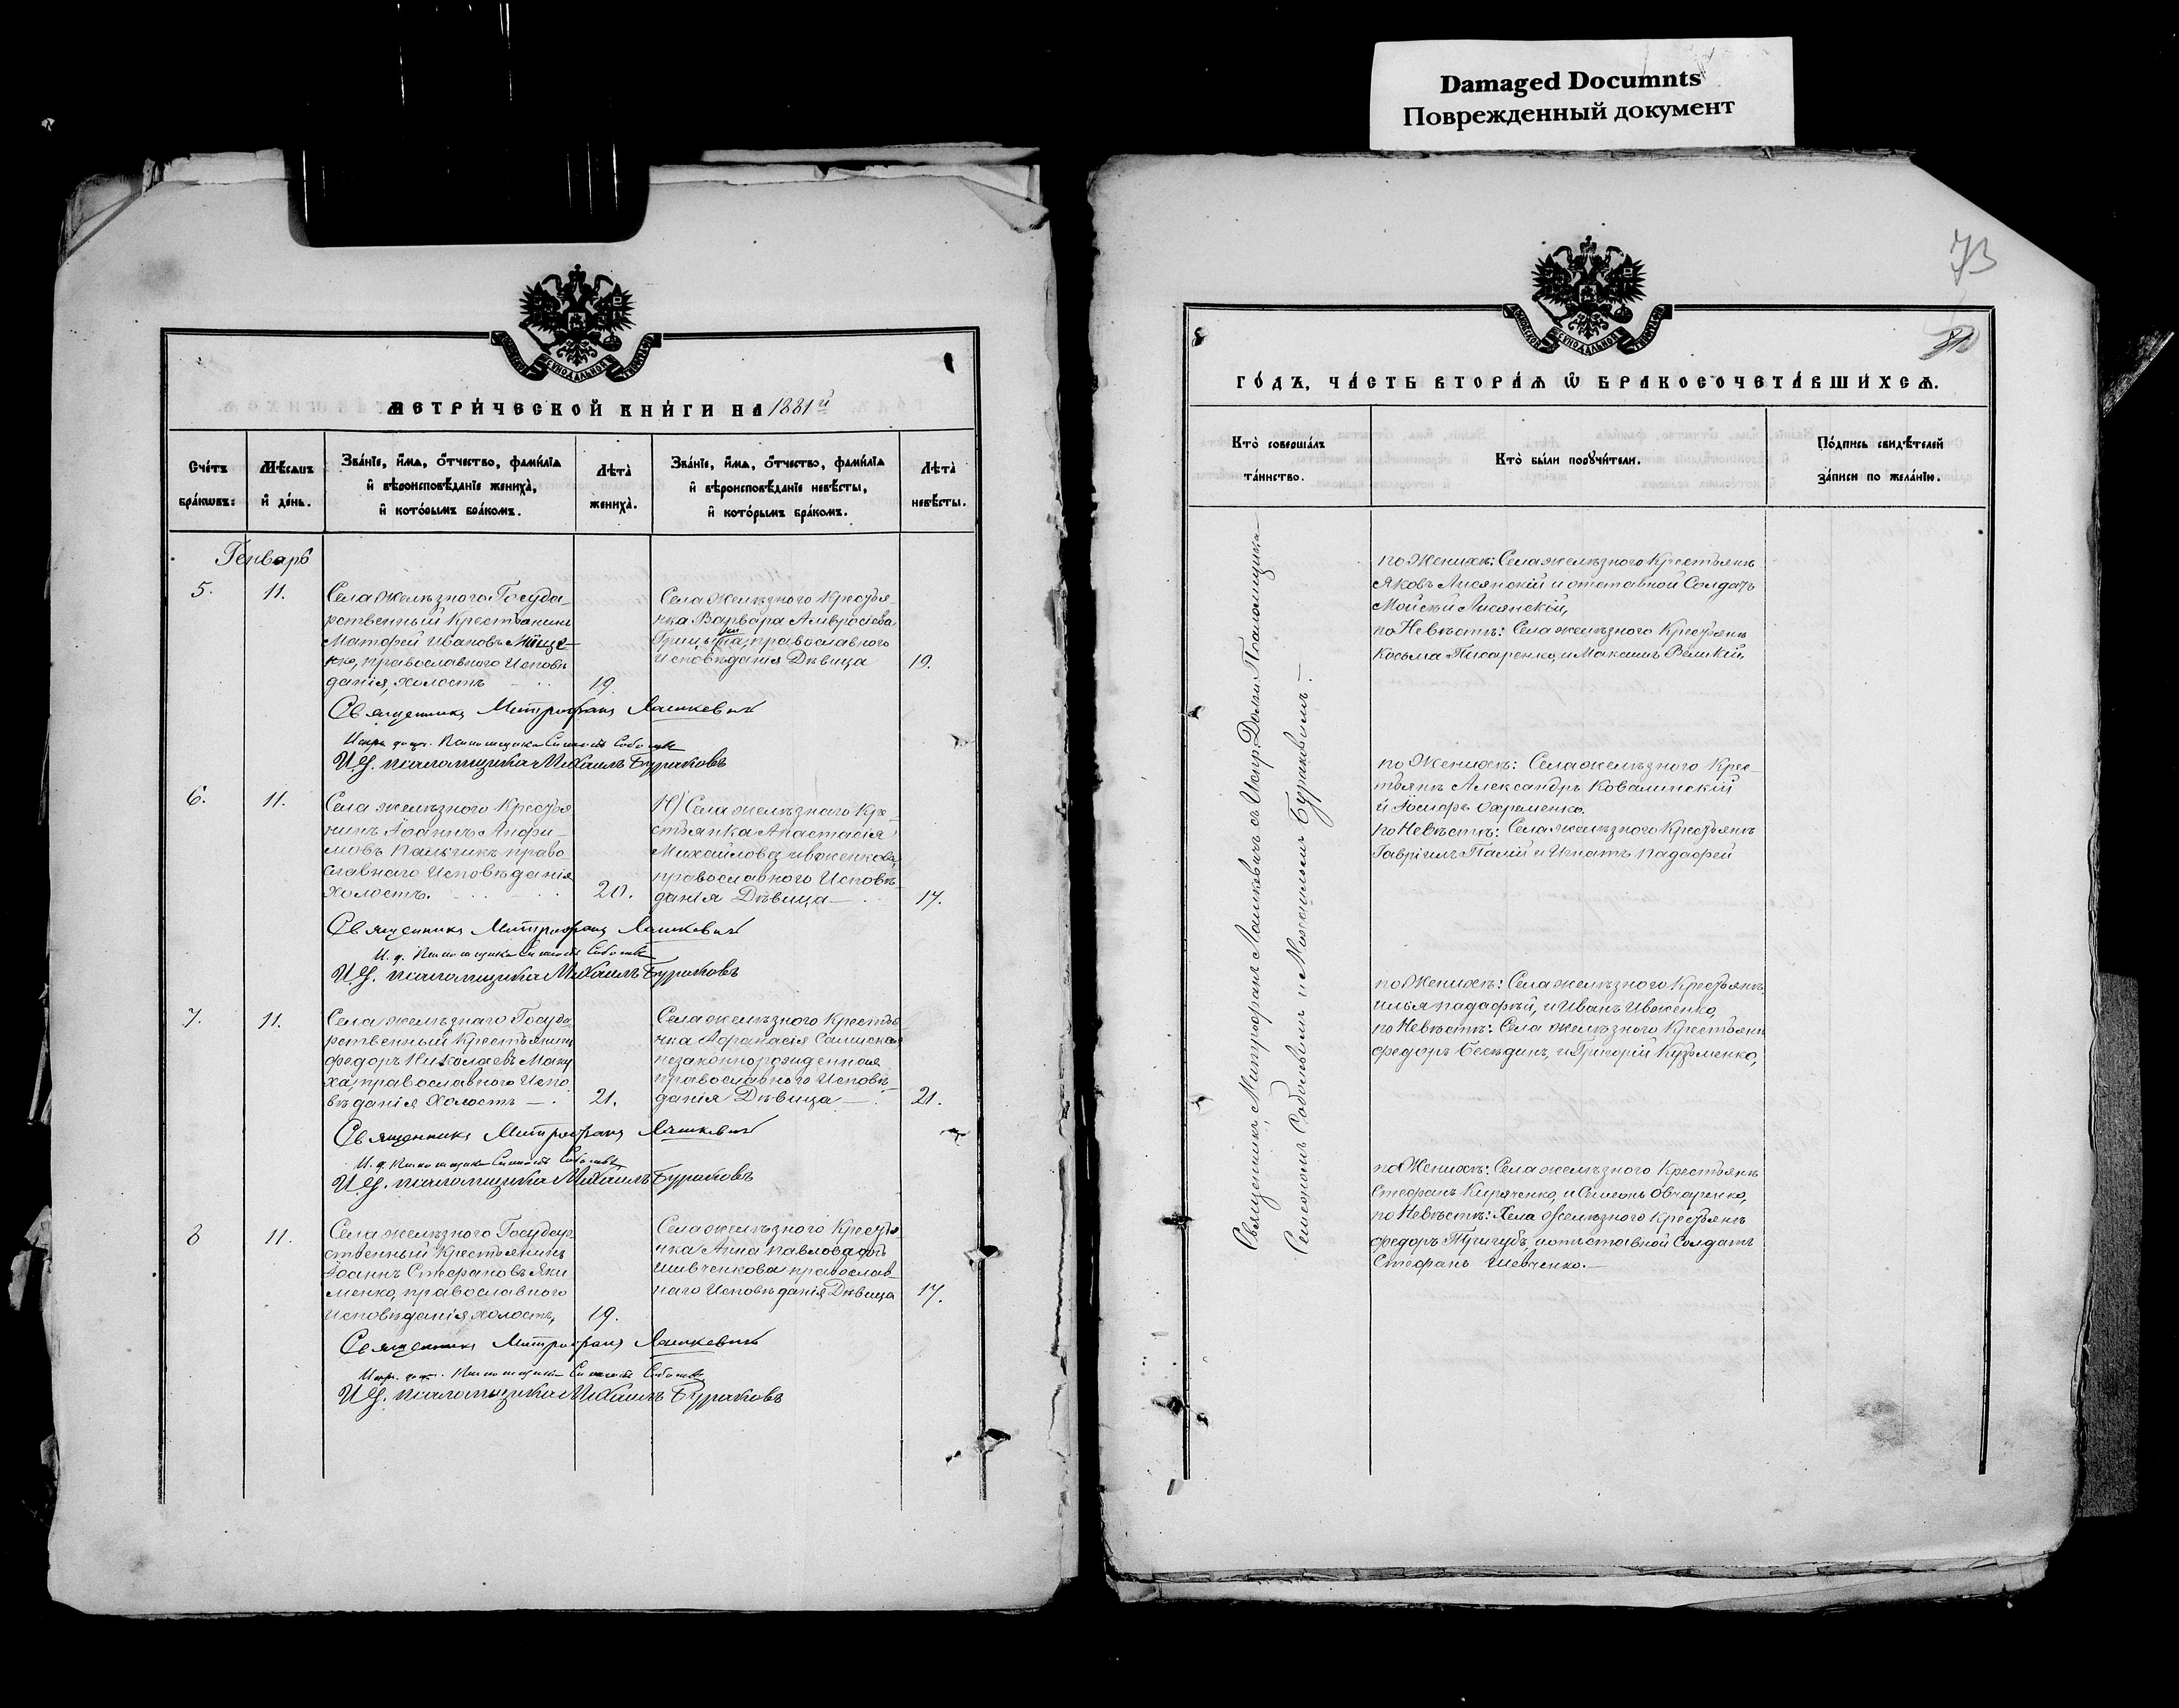 Damaged Documnts
Поврежденный документ
МЕТРИ́ЧЕСКОЙ КНИ́ГИ НА 1881й
Сче́тъ бра́кωвъ:
Мѣ́сѧцъ и҆ де́нь.
Зва́нїе, и҆́мѧ, ѻ҆́тчество, фами́лїѧ и҆ вѣроисповѣ́данїе жениха̀, и҆ кото́рымъ бра́комъ.
Лѣ́та жениха̀.
Зва́нїе, и҆́мѧ, ѻ҆́тчество, фами́лїѧ и҆ вѣроисповѣ́данїе невѣ́сты, и҆ кото́рымъ бра́комъ.
Лѣ́та невѣ́сты.
Генварь
5.
11.
Села Желѣзного Госуда-
рственный Крестьянинъ
Матфей Ивановъ Мище-
нко, православного Исповѣ
данія, холостъ
19.
Села Желѣзного Крестья-
нка Варвара Амвросіева
православного
Исповѣданія Дѣвица
19.
Священникъ Митрофанъ Лашкевичъ
И. д. Псаломщика Симеонъ Соболевъ
И. д. псаломщика Михаилъ Бураковъ
6.
11.
Села Желѣзного Крестья
нинъ Іоаннъ Анфи-
мовъ Пальчикъ право
славнаго Исповѣданія
Холостъ.
20.
Села Желѣзнаго Кре-
стьянка Анастасія
Михайлова Ивженкова,
православного Исповѣ-
данія Дѣвица
17.
Священникъ Митрофанъ Лашкевичъ
И. д. Псаломщика Симеонъ Соболевъ
И. д. псаломщика Михаилъ Бураковъ
7.
11.
Села Желѣзнаго Госуда
рственный Крестьянинъ
Федоръ Николаевъ Маку
ха, православного Испо
вѣданія Холостъ
21.
Села Желѣзного Крестья
нка Афанасія
незаконнорожденная
православного Исповѣ-
данія Дѣвица
21.
Священникъ Митрофанъ Лашкевичъ
И. д. Псаломщика Симеонъ Соболевъ
И. д. псаломщика Михаилъ Бураковъ
8
11.
Села Желѣзного Государ
ственный Крестьянинъ
Іоаннъ Стефановъ Яки
менко, православного
Исповѣданія, холостъ,
19.
Села Желѣзного Крестья
нка Анна Павлова дочь
Шивченкова православ-
наго Исповѣданія Дѣвица
17.
Священникъ Митрофанъ Лашкевичъ
Испр. дол. Псаломщика Симеонъ Соболевъ
И. д. псаломщика Михаилъ Бураковъ
73
ГО́ДЪ, ЧА́СТЬ ВТОРА́Ѧ Ѡ҆ БРАКОСОЧЕТА́ВШИХСѦ.
Кто̀ соверша́лъ та́инство.
Кто̀ бы́ли порꙋчи́тели.
По́дпись свидѣ́телей за́писи по жела́нїю.
Священникъ Митрофанъ Лашкевичъ съ Испр. Долж. Псаломщика
Семеномъ Соболевымъ и Михаиломъ Бураковымъ.
по Женихѣ: Села Желѣзного Крестьянъ
Яковъ Лисянскій и отставной Солдатъ
Мойсей Лисянскій,
по Невѣстѣ: Села Желѣзного Крестьянъ
Косьма Писаренко, и Максимъ Великій.
по Женихѣ: Села Желѣзного Крес-
тьянъ Александръ Ковалинскій
и Іосифъ Охрименко.
по Невѣстѣ: Села Желѣзного Крестьянъ
Гавріилъ Палій и Игнатъ Падафей
по Женихѣ: Села Желѣзного Крестьянъ,
Илья Падафѣй, и Иванъ Ивженко,
по Невѣстѣ: Села Желѣзного Крестьянъ
Федоръ Бесѣдинъ, и Григорій Кузьменко,
по Женихѣ: Села Желѣзного Крестьянъ
Стефанъ Киряченко, и Симеонъ Овчаренко,
по Невѣстѣ: Села Желѣзного Крестьянъ
Федоръ Тригубъ, и отставной Солдатъ
Стефанъ Шевченко.